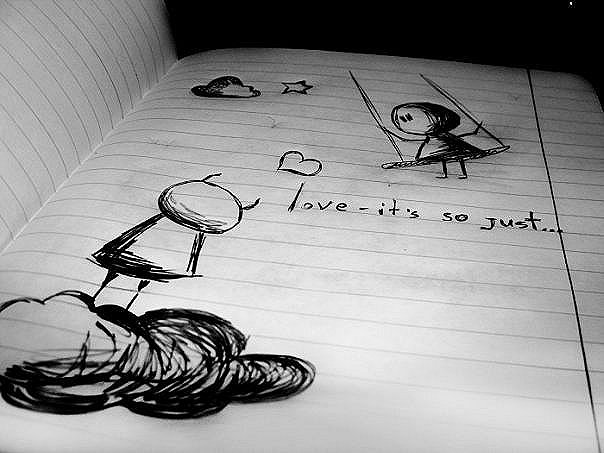 love - it's so just...